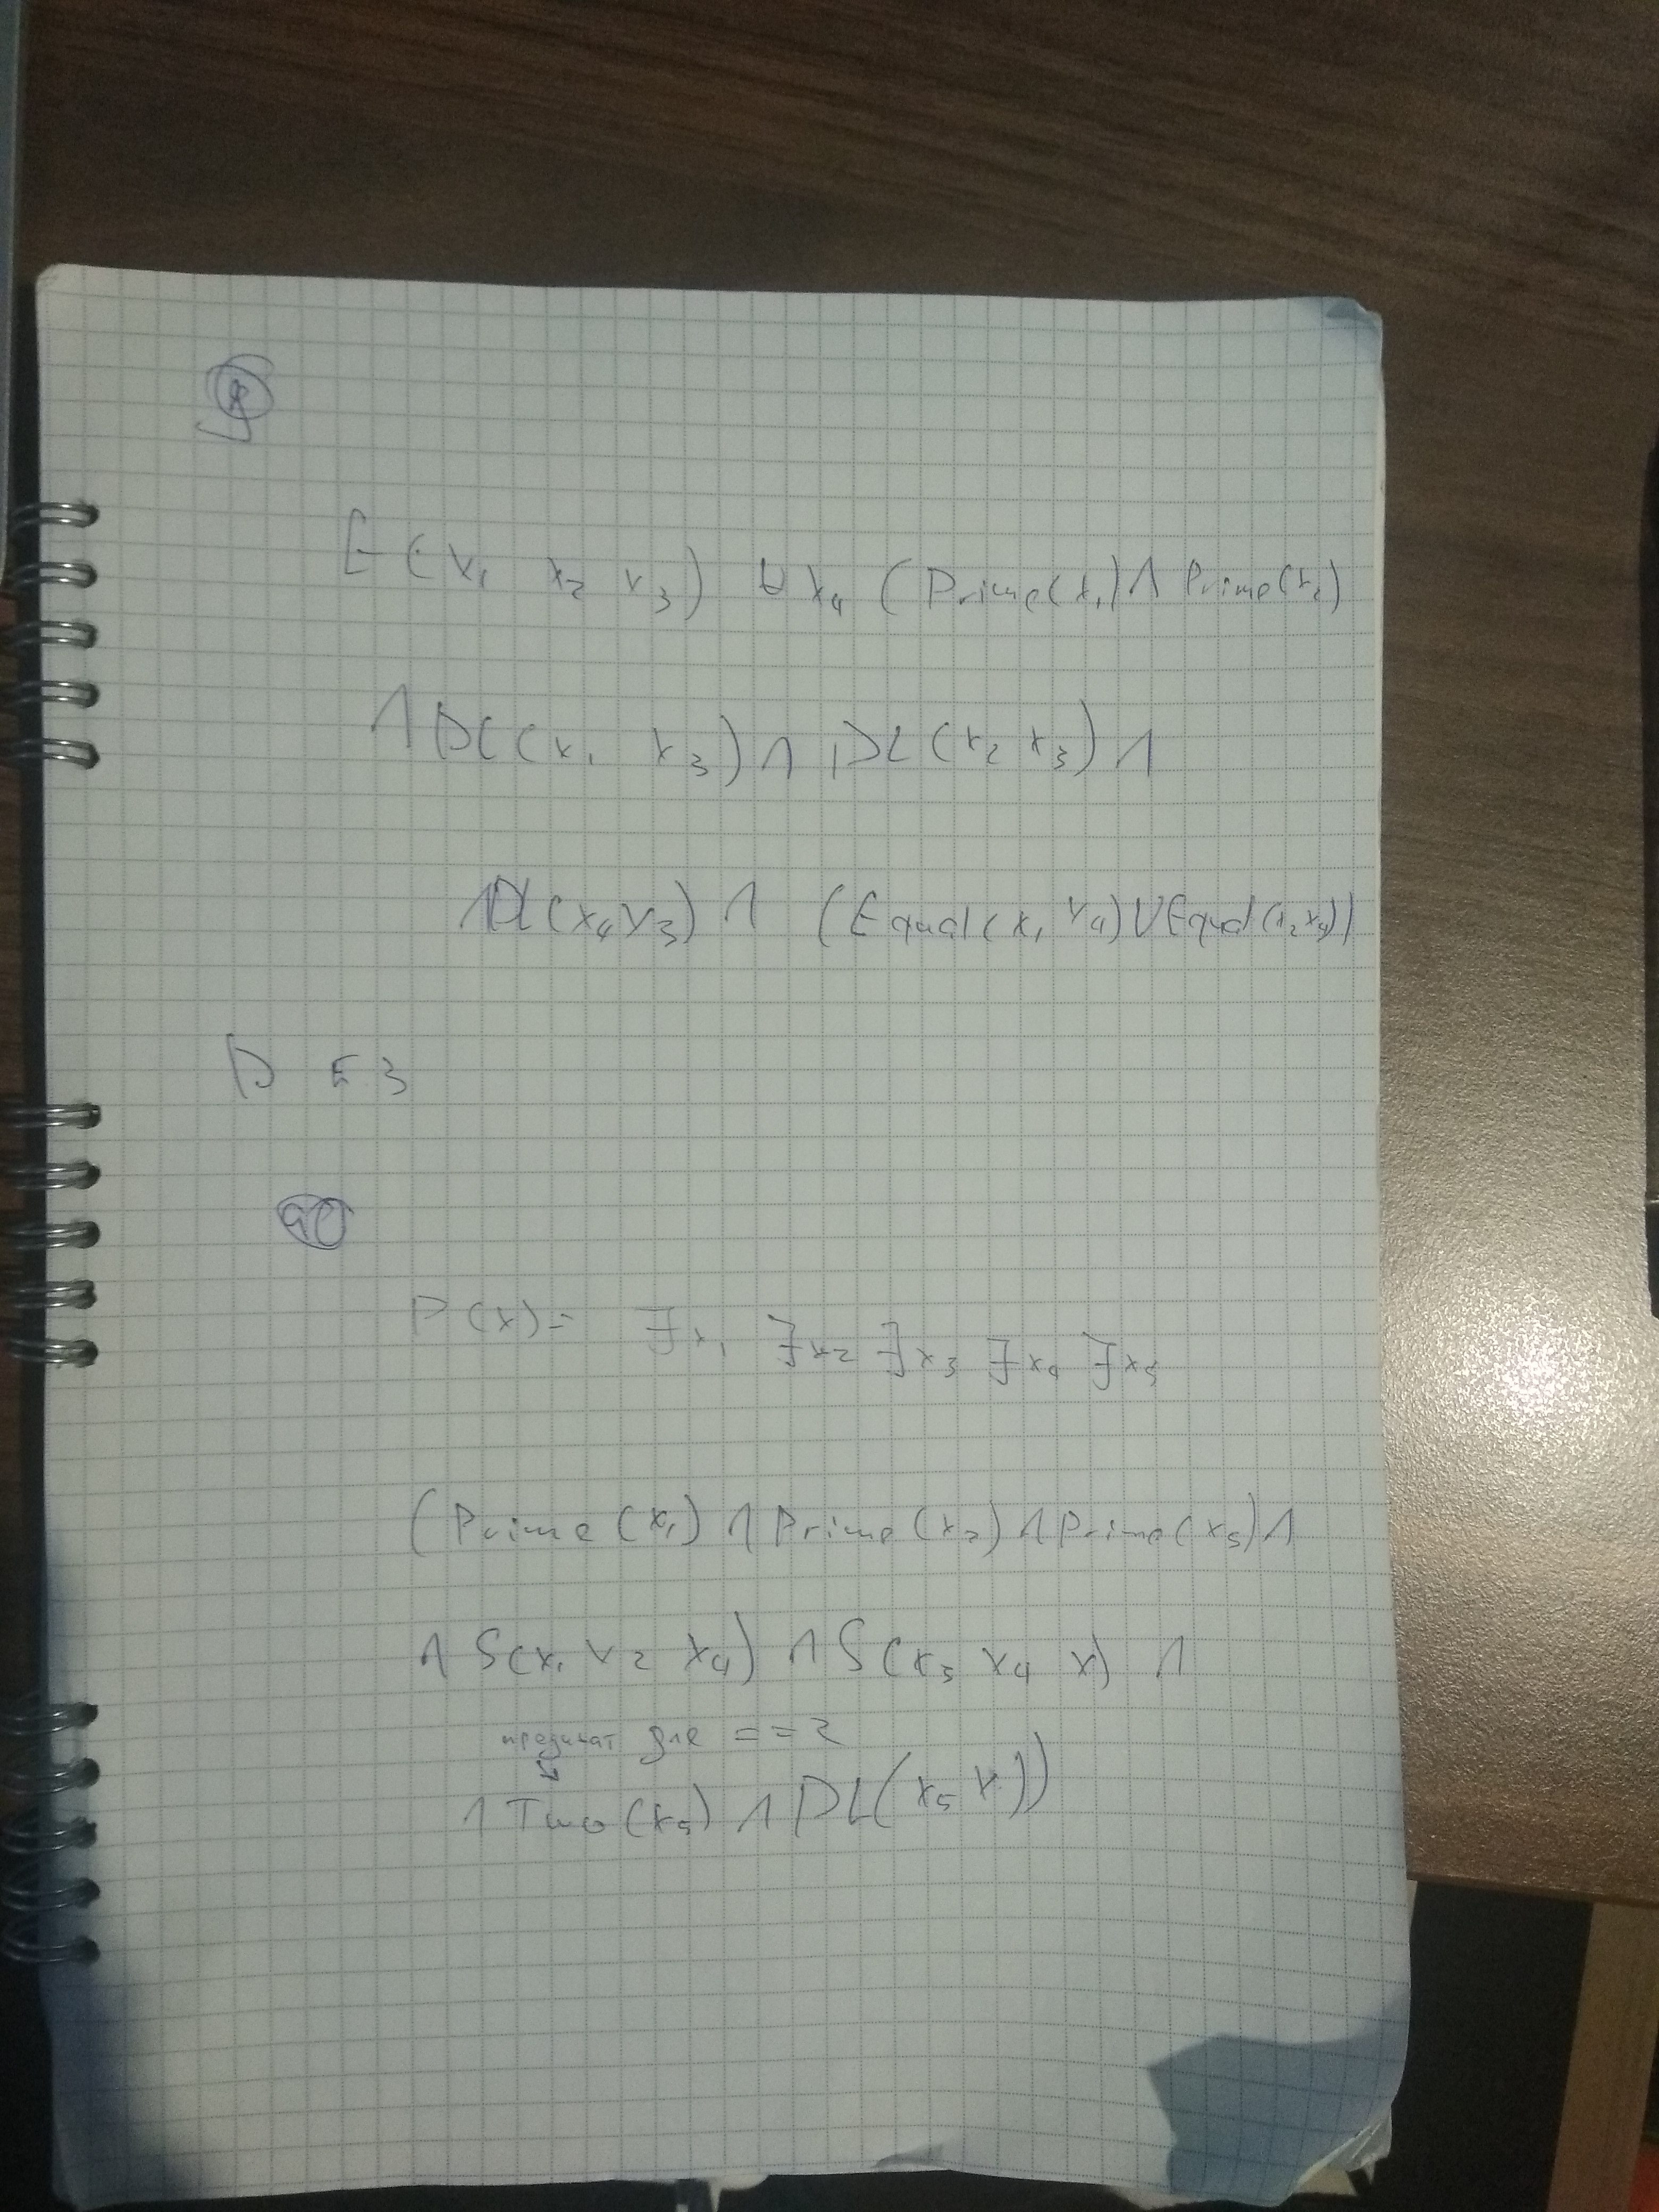 E(x₁ x₂ x₃) ∀x₄ (Prime(x₁) ∧ Prime(x₂)
∧ DL(x₁ x₃) ∧ DL(x₂ x₃) ∧
∧ DL(x₄ x₃) ∧ (Equal(x₁ x₄) ∨ Equal(x₂ x₄))
D E 3
P(x) = ∃x₁ ∃x₂ ∃x₃ ∃x₄ ∃x₅
(Prime(x₁) ∧ Prime(x₂) ∧ Prime(x₅) ∧
∧ S(x₁ x₂ x₄) ∧ S(x₃ x₄ x) ∧
предикат для == 2
∧ Two(x₅) ∧ DL(x₅ x))